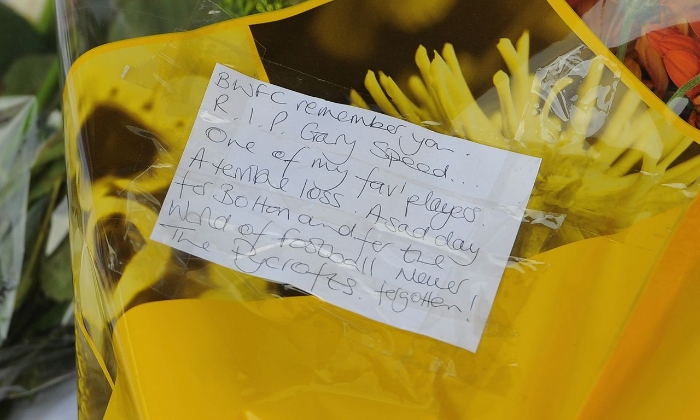 BWFC remember you.
R.I.P. Gary Speed...
One of my fav' players.
A terrible loss. A sad day
for Bolton and for the
World of football. Never
The Rycrofts. forgotten!